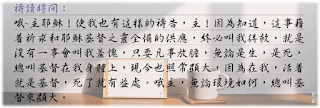 禱讀時間：
哦~主耶穌！使我也有這樣的禱告，主！因為知道，這事藉
着祈求和耶穌基督之靈全備的供應，終必叫我得救，就是
沒有一事會叫我羞愧，只要凡事放膽，無論是生，是死，
總叫基督在我身體上，現今也照常顯大，因為在我，活著
就是基督，死了就有益處。哦主，無論環境如何，總叫基
督來顯大。